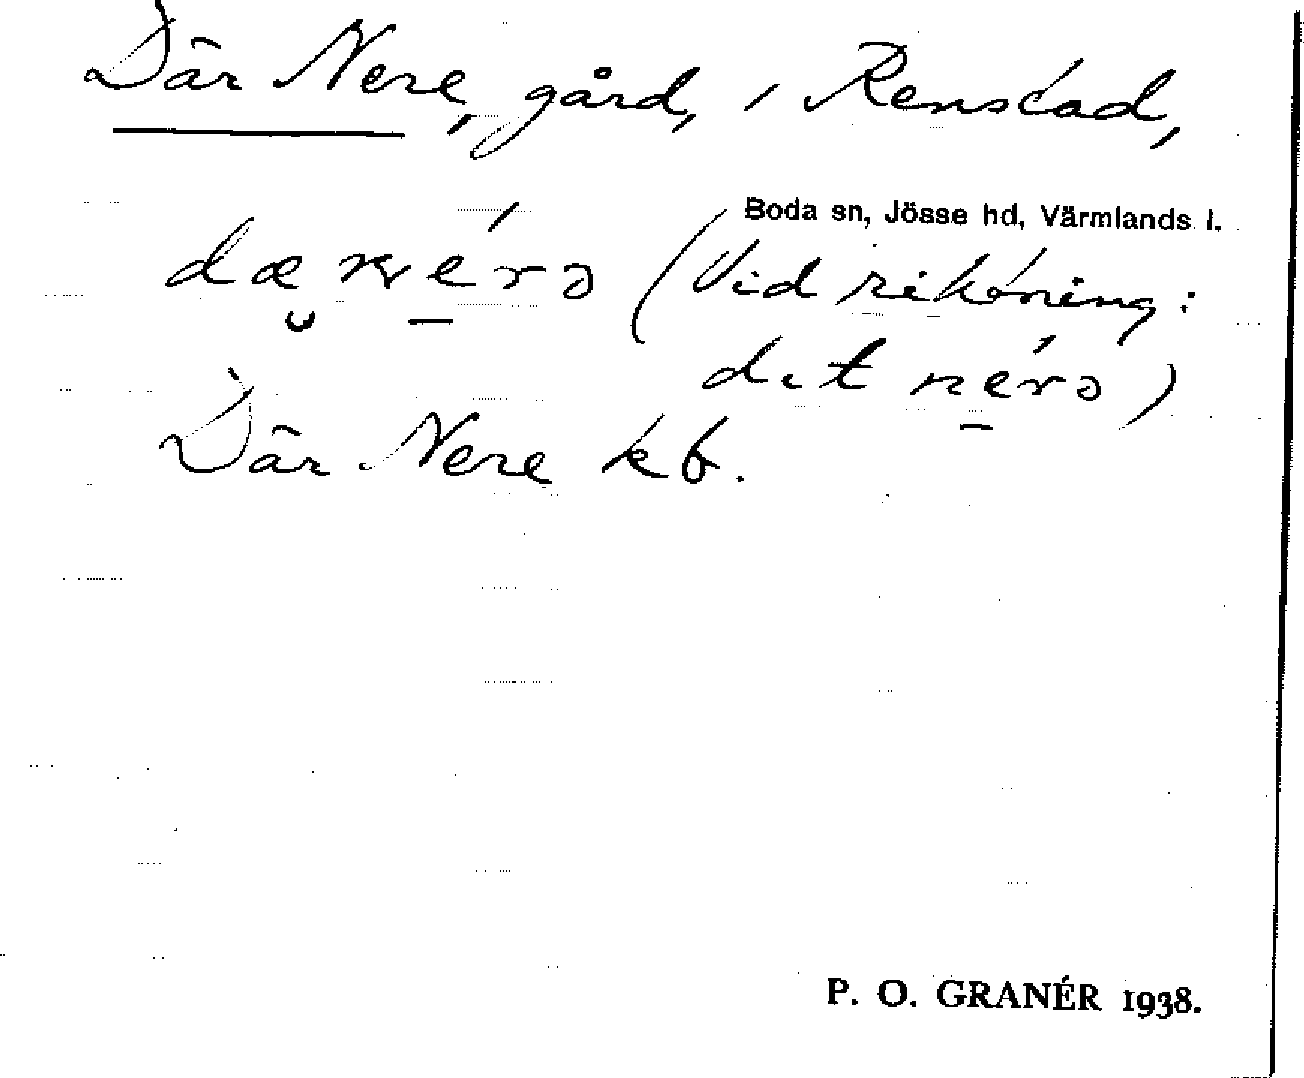 Där Nere, gård, i Renstad,
Boda sn, Jösse hd, Värmlands l.
dæ nérə (Vid riktning:
dit nérə)
Där Nere kb.
P. O. GRANÉR 1938.